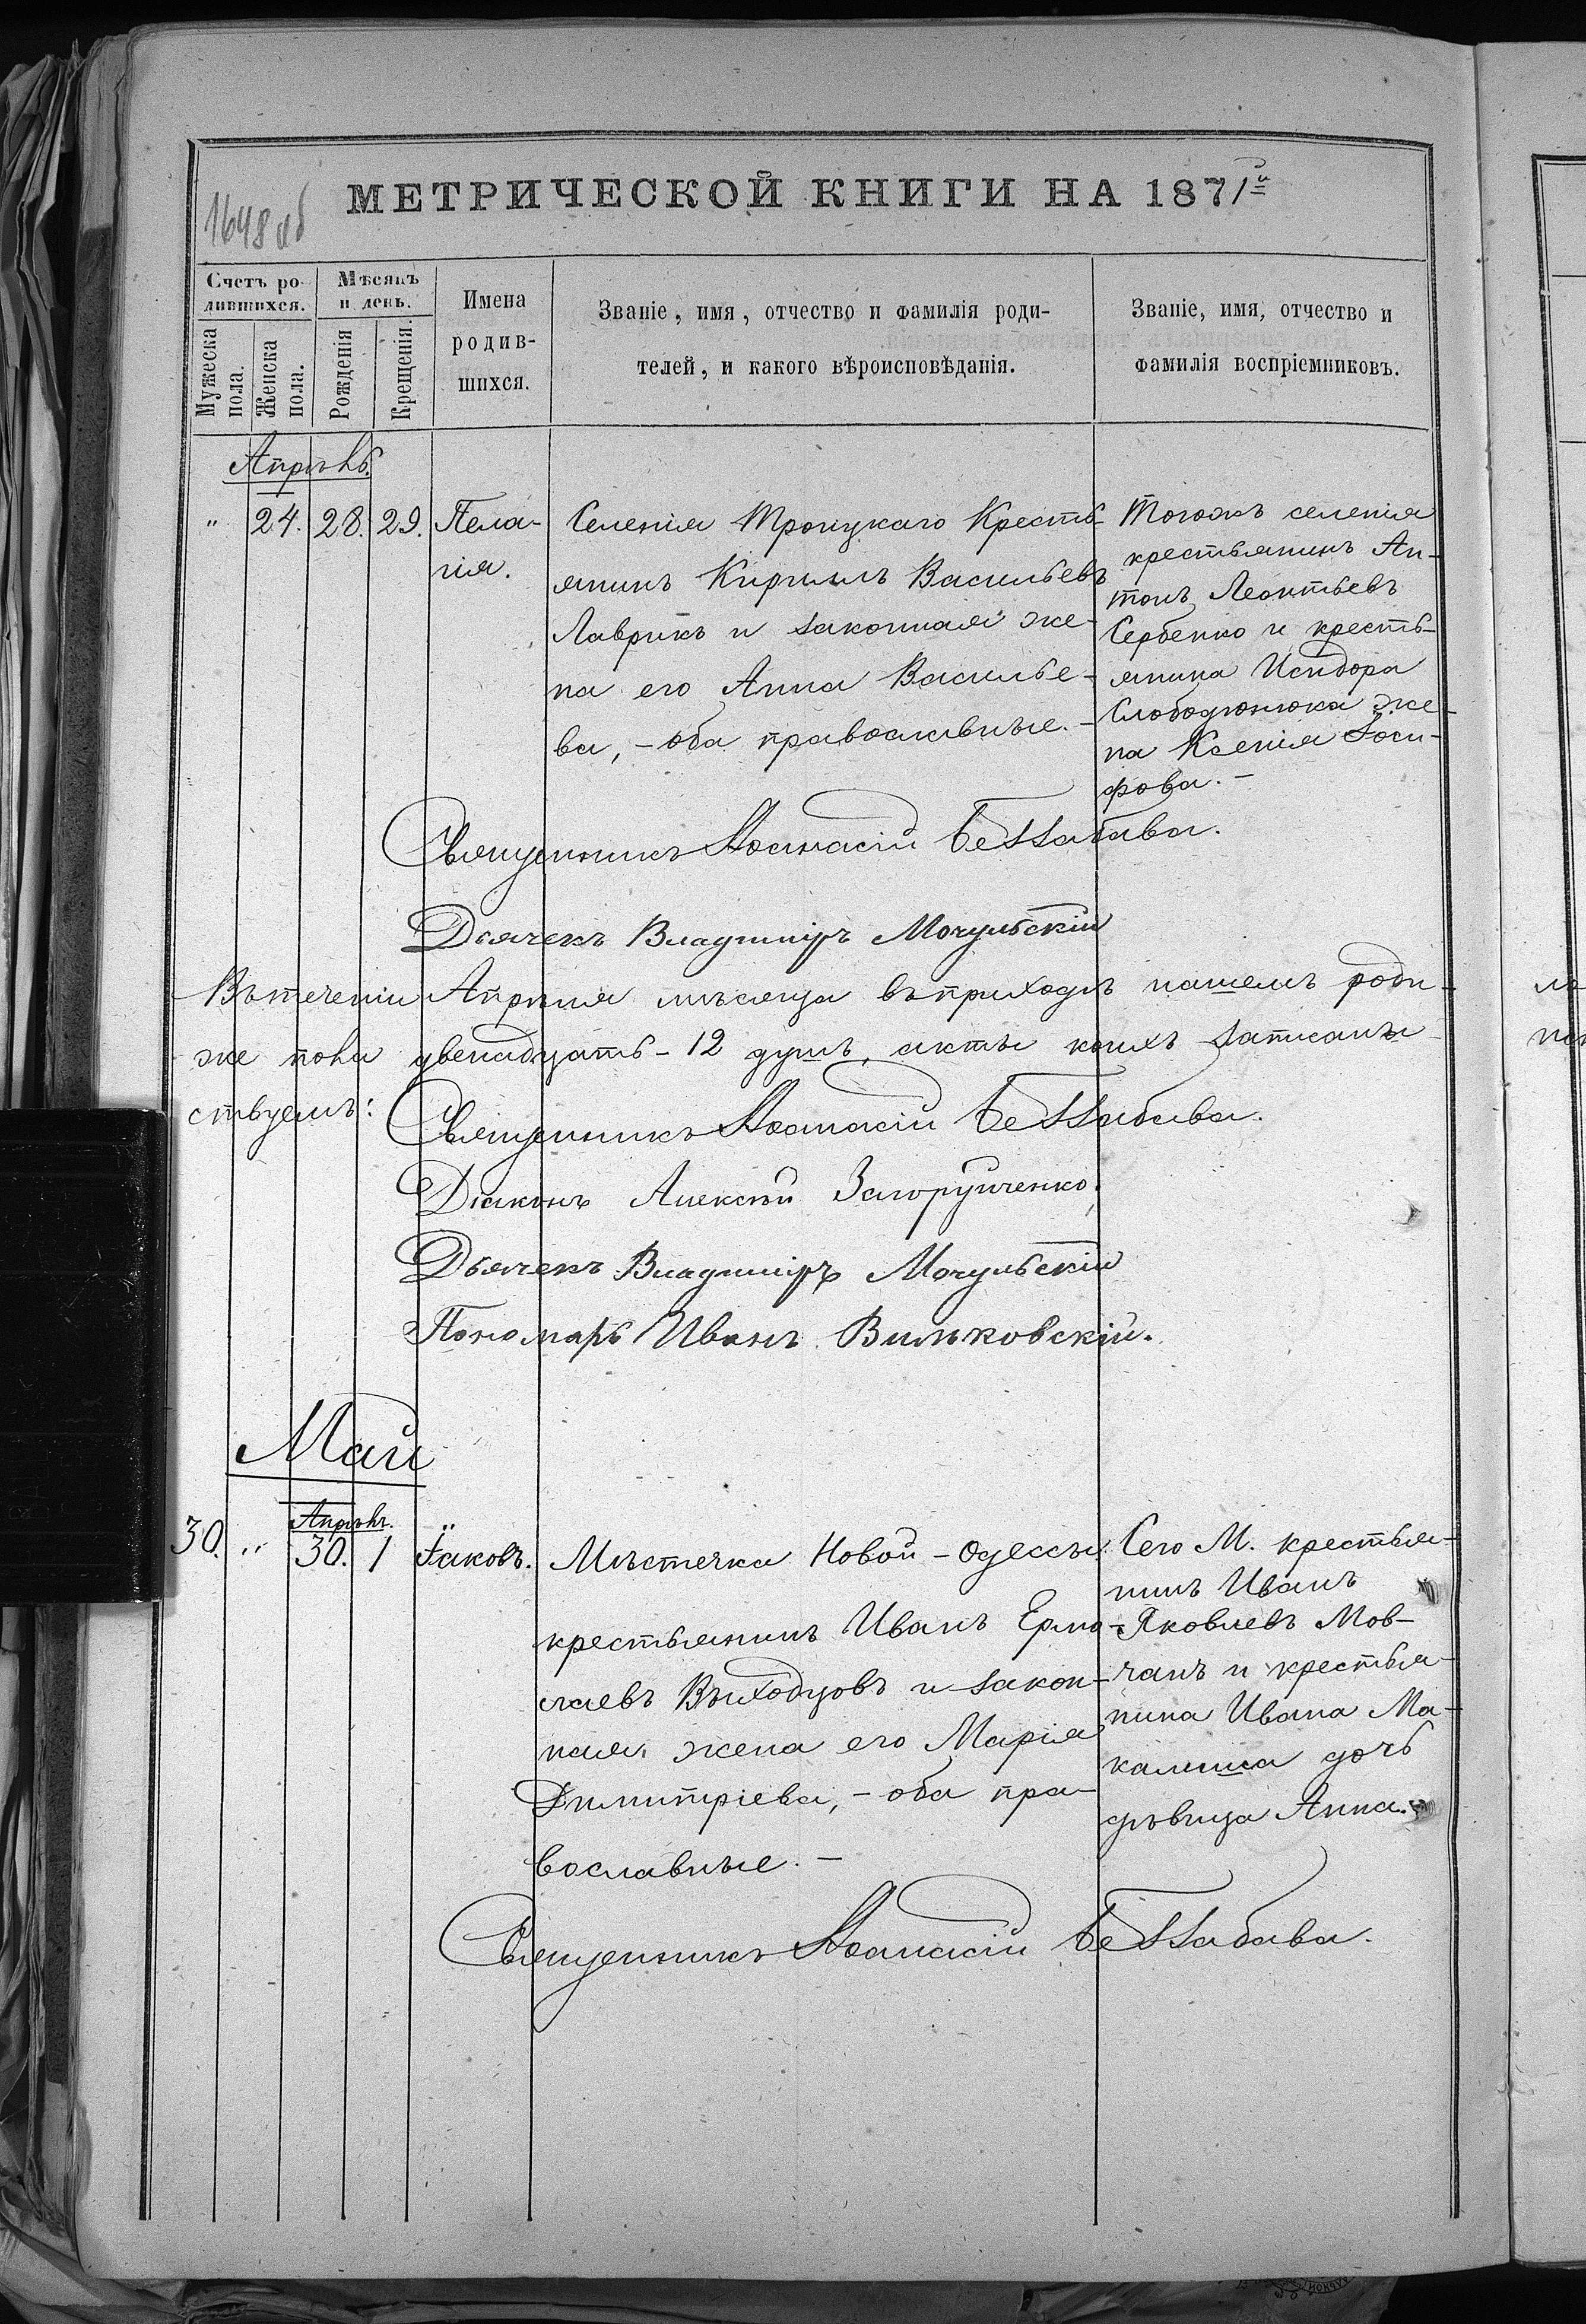 1648 об
МЕТРИЧЕСКОЙ КНИГИ НА 1871й
Счетъ ро-
дившихся.
Мужеска
пола.
Женска
пола.
Мѣсяцъ
и день.
Рожденія
Крещенія.
Имена
родив-
шихся.
Званіе, имя, отчество и фамилія роди-
телей, и какого вѣроисповѣданія.
Званіе, имя, отчество и
фамилія воспріемниковъ.
Апрѣль.
" 24. 28. 29.
Пела-
гія.
Селенія Троицкаго Кресть-
янинъ Кириллъ Васильевъ
Лаврикъ и законная же-
на его Анна Василье-
ва, - оба православные. -
Тогожъ селенія
крестьянинъ Ан-
тонъ Леонтьевъ
Сербенко и кресть-
янина Исидора
Слободянюка же-
на Ксенія Іоси-
фова. -
Священникъ Аѳанасій Беззабава.
Дьячекъ Владиміръ Мочульскій
Въ теченіи Апрѣля мѣсяца въ приходѣ нашемъ роди-
же пола двенадцать - 12 душъ, акты коихъ записаны
ствуемъ:
Священникъ Аѳанасій Беззабава.
Діаконъ Алексѣй Загоруйченко.
Дьячекъ Владиміръ Мочульскій
Пономарь Иванъ Вильковскій.
Май
Апрѣль.
30. " 30. 1
Іаковъ.
Мѣстечка Новой - Одессы
крестьянинъ Иванъ Ермо-
лаевъ Выходцовъ и закон-
ная жена его Марія
Димитріева, - оба пра-
вославные. -
Сего М. крестья-
нинъ Иванъ
Яковлевъ Мов-
чанъ и крестья-
нина Ивана Ма-
калиша дочь
дѣвица Анна.
Священникъ Аѳанасій Беззабава.